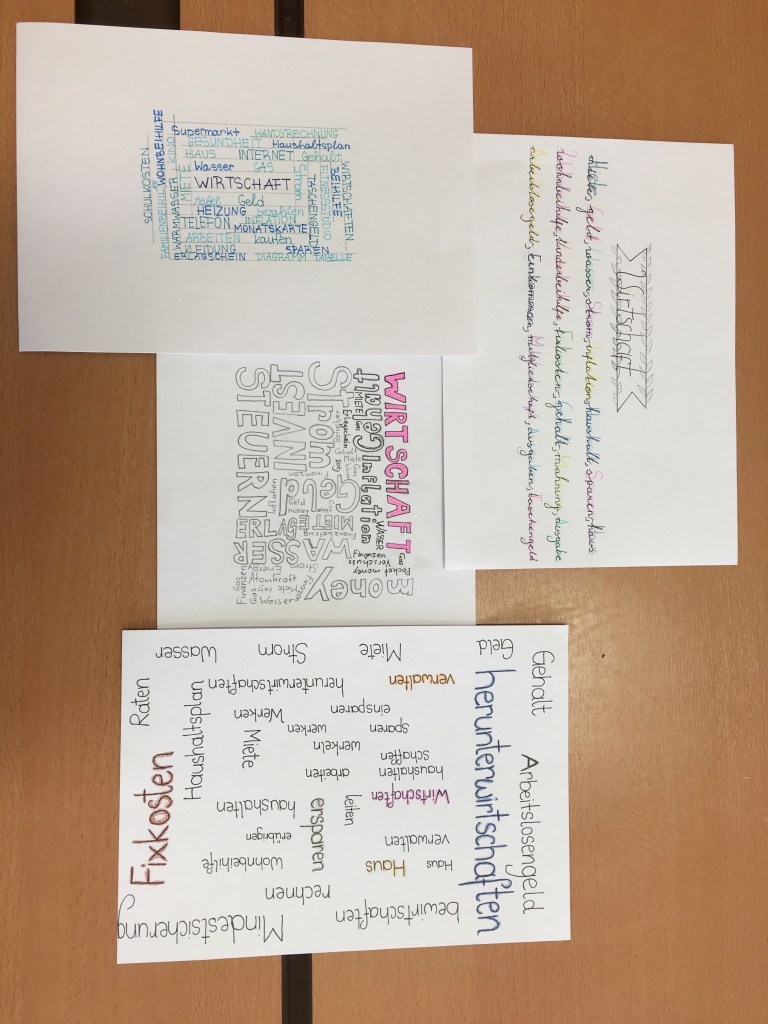 SCHULKOSTEN
FAMILIENBEIHILFE
WOHNBEIHILFE
WARMWASSER KINO
MIETE
Supermarkt HANDYRECHNUNG
GESUNDHEIT Haushaltsplan
HAUS INTERNET Gehalt
Wasser GAS
Strom
WIRTSCHAFT
Geld
HEIZUNG bezahlen
TELEFON INFLATION
MONATSKARTE
ARBEITEN kaufen
KLEIDUNG SPAREN
ERLAGSCHEIN DIAGRAMM TABELLE
TASCHENGELD
FITNESSSTUDIO
BEIHILFE
WIRTSCHAFTEN
Wirtschaft
Miete, geld, wasser, Strom, inflation, haushalt, Sparen, Haus
Wohnbeihilfe, Kinderbeihilfe, Fixkosten, Gehalt, Mahnung, Ausgabe
Arbeitslosengeld, Einkommen, Mitgliedschaft, Ausgaben, Taschengeld
WIRTSCHAFT
Gehalt
Inflation
MIETE Gas
Erlagschein
WASSER
Gas
Finanzen
Vorschuss
Pocket money
Strom
Geld
money
INVEST
STEUERN
ERLAGS
MIETE
WASSER
Strom
Energie
Atomkraft
Miete Gas
Gas Wasser
Finanzen
Gehalt Arbeitslosengeld
Geld herunterwirtschaften
Miete verwalten
einsparen sparen
schaffen
haushalten
Wirtschaften
verwalten
Haus
Haus
bewirtschaften
Strom herunterwirtschaften
Werken werken
werkeln
arbeiten
leiten
ersparen
rechnen
Wasser
Haushaltsplan
Miete
haushalten
erübrigen
Wohnbeihilfe
Mindestsicherung
Raten
Fixkosten